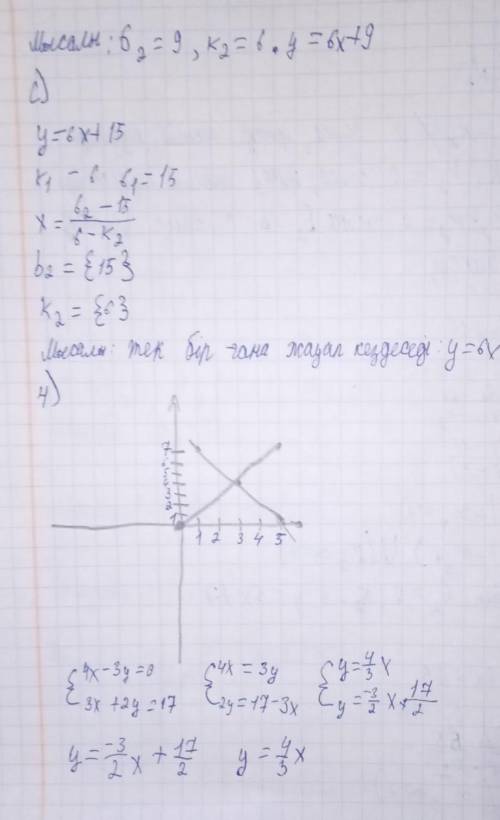 Мысалы: b₂ = 9, k₂ = 6. y = 6x+9
c)
y = 6x+15
k₁ - 6 b₁ = 15
x = (b₂ - 15)/(6 - k₂)
b₂ = {15}
k₂ = {6}
Мысалы: тек бір ғана жағдай кездеседі: y = 6x
4)
7
1
1 2 3 4 5
{4x - 3y = 0 {4x = 3y {y = 4/3 x
{3x + 2y = 17 {2y = 17 - 3x {y = -3/2 x + 17/2
y = -3/2 x + 17/2 y = 4/3 x